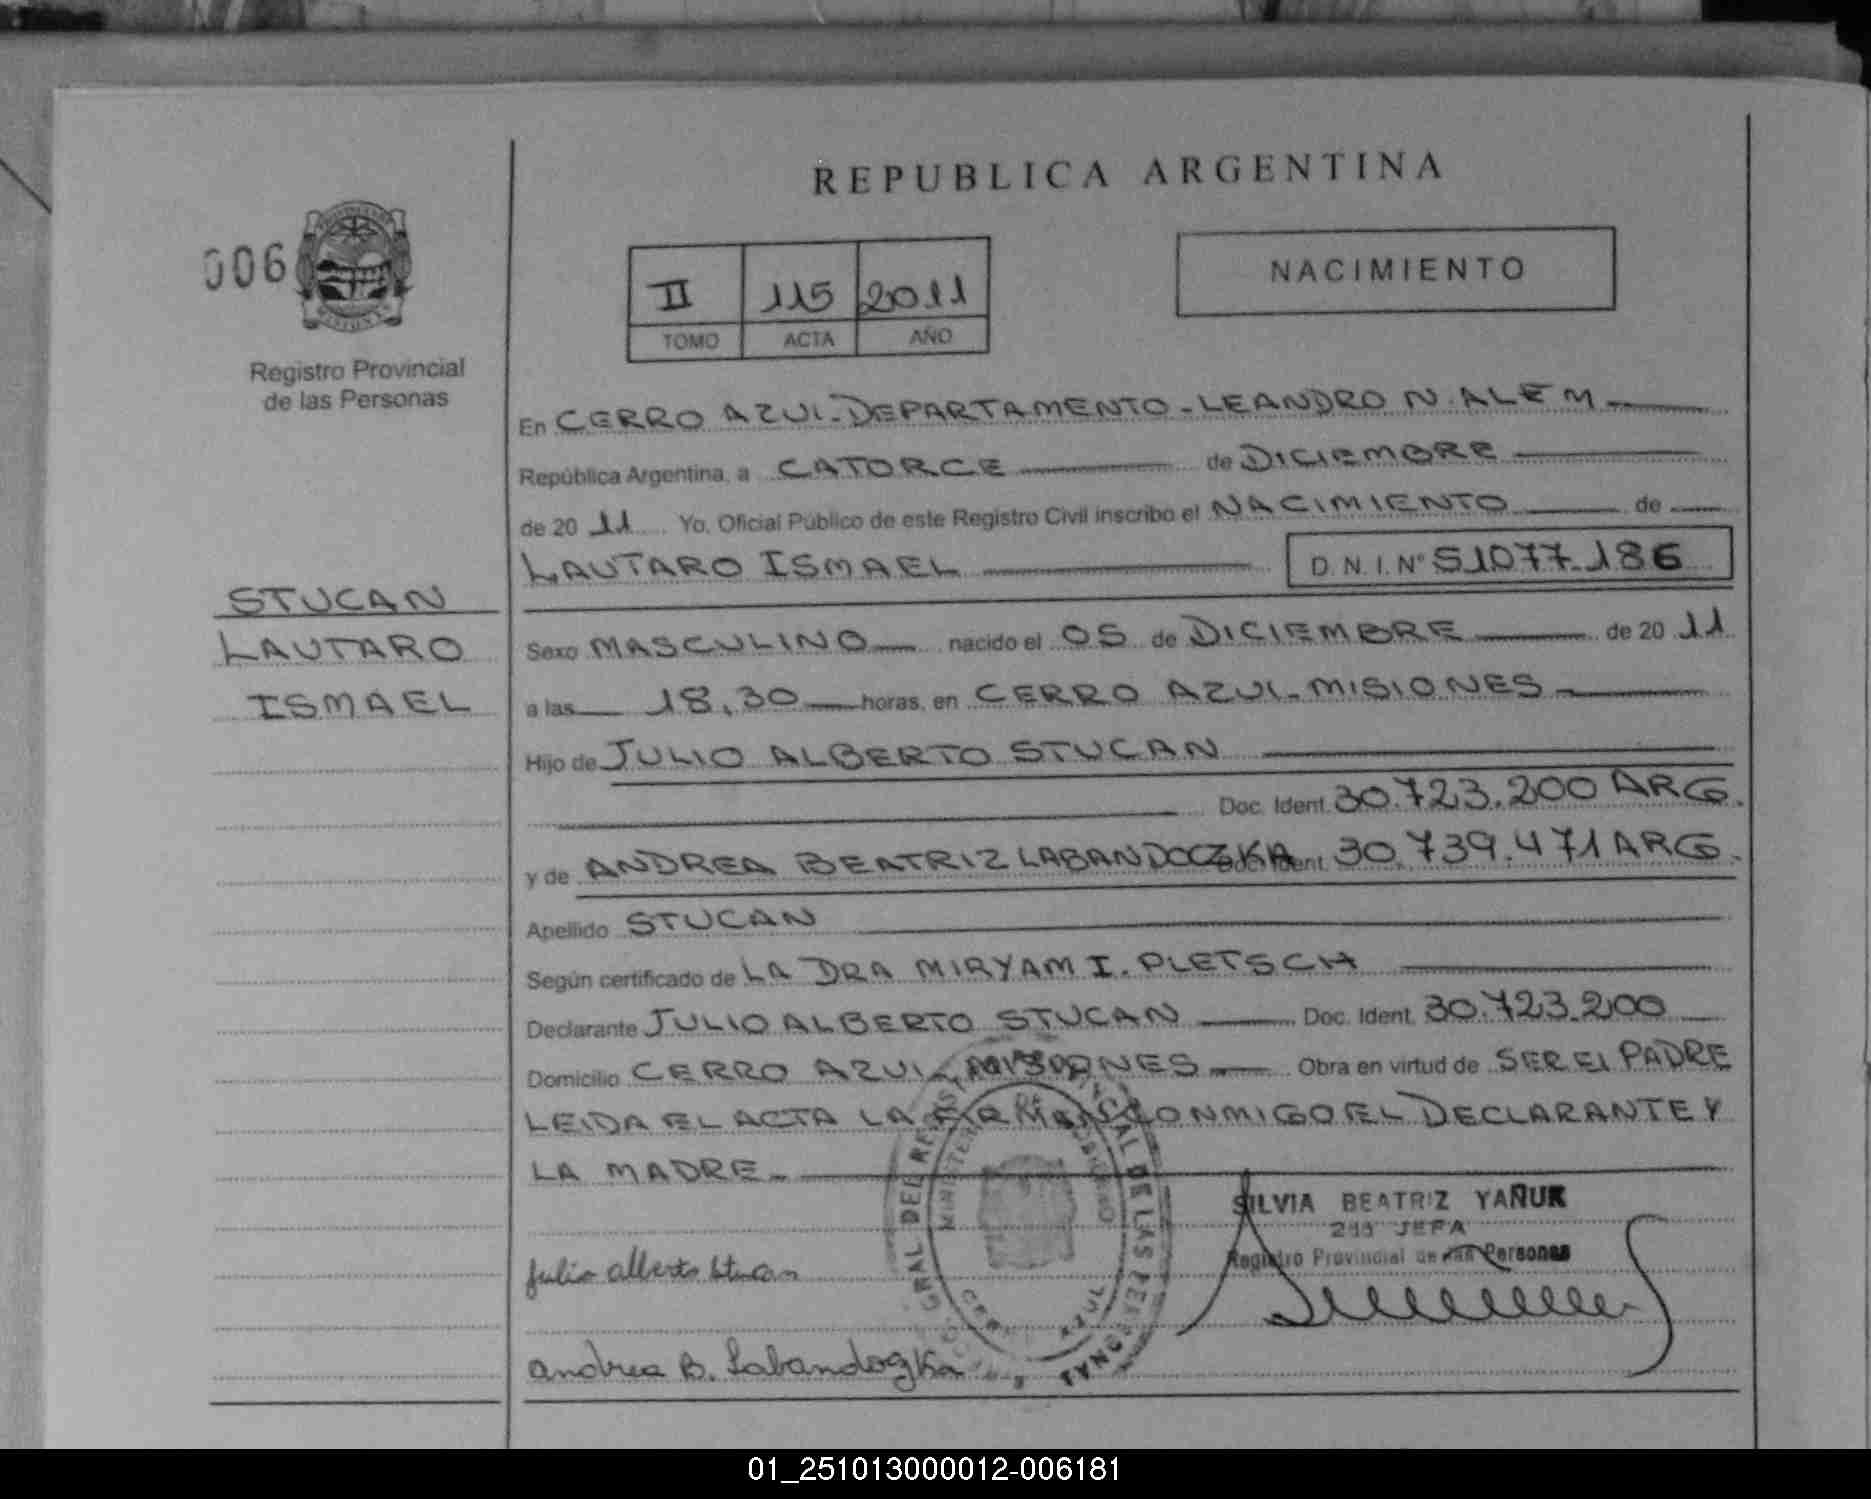 REPUBLICA ARGENTINA
006
NACIMIENTO
II 115 2011
TOMO ACTA AÑO
Registro Provincial
de las Personas
En CERRO AZUL-DEPARTAMENTO-LEANDRO N. ALEM
República Argentina, a CATORCE de DICIEMBRE
de 20 11 Yo, Oficial Público de este Registro Civil inscribo el NACIMIENTO de
LAUTARO ISMAEL D.N.I.Nº 51.077.186
STUCAN
LAUTARO
ISMAEL
Sexo MASCULINO nacido el 05 de DICIEMBRE de 20 11
a las 18,30 horas, en CERRO AZUL-MISIONES
Hijo de JULIO ALBERTO STUCAN
Doc. Ident. 30.723.200 ARG.
y de ANDREA BEATRIZ LABANDOCZKA Doc. Ident. 30.739.471 ARG.
Apellido STUCAN
Según certificado de LA DRA MIRYAM I. PLETSCH
Declarante JULIO ALBERTO STUCAN Doc. Ident. 30.723.200
Domicilio CERRO AZUL, MISIONES Obra en virtud de SER EL PADRE
LEIDA EL ACTA LA FIRMAN CONMIGO EL DECLARANTE Y
LA MADRE
SILVIA BEATRIZ YAÑUK
JEFA
Registro Provincial de las Personas
julio alberto stucan
andrea B. Labandozka
GRAL DEL REG PCIAL DE LAS PERSONAS
MINISTERIO DE GOBIERNO
CERRO AZUL
01_251013000012-006181